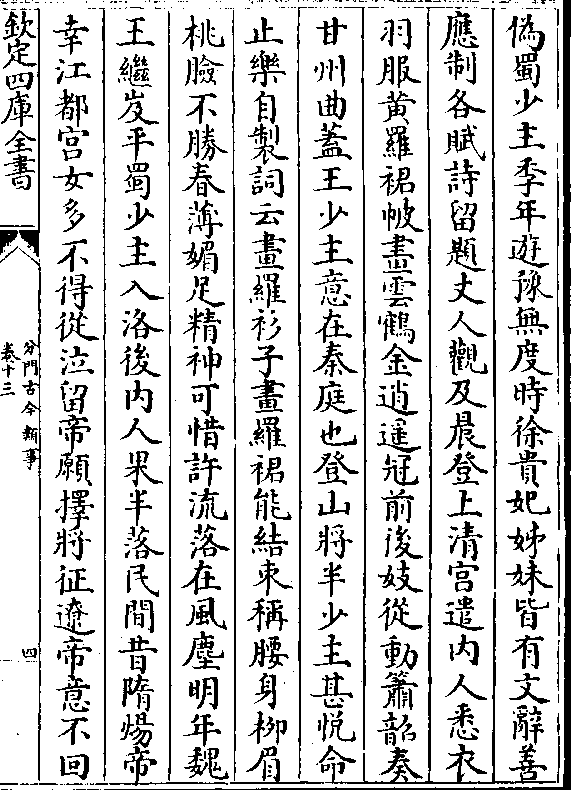 偽蜀少主季年遊豫無度時徐貴妃姊妹皆有文辭善
應制各賦詩留題丈人觀及晨登上清宫遣内人悉衣
羽服黄羅裙帔畫雲鶴金逍遥冠前後妓從動簫韶奏
甘州曲葢王少主意在秦庭也登山將半少主甚悦命
止樂自製詞云畫羅衫子畫羅裙能結束稱腰身栁眉
桃臉不勝春薄媚足精神可惜許流落在風塵明年魏
王繼岌平蜀少主入洛後内人果半落民間昔隋煬帝
幸江都宫女多不得從泣留帝願擇將征遼帝意不回
欽定四庫全書
分門古今類事
卷十三
四